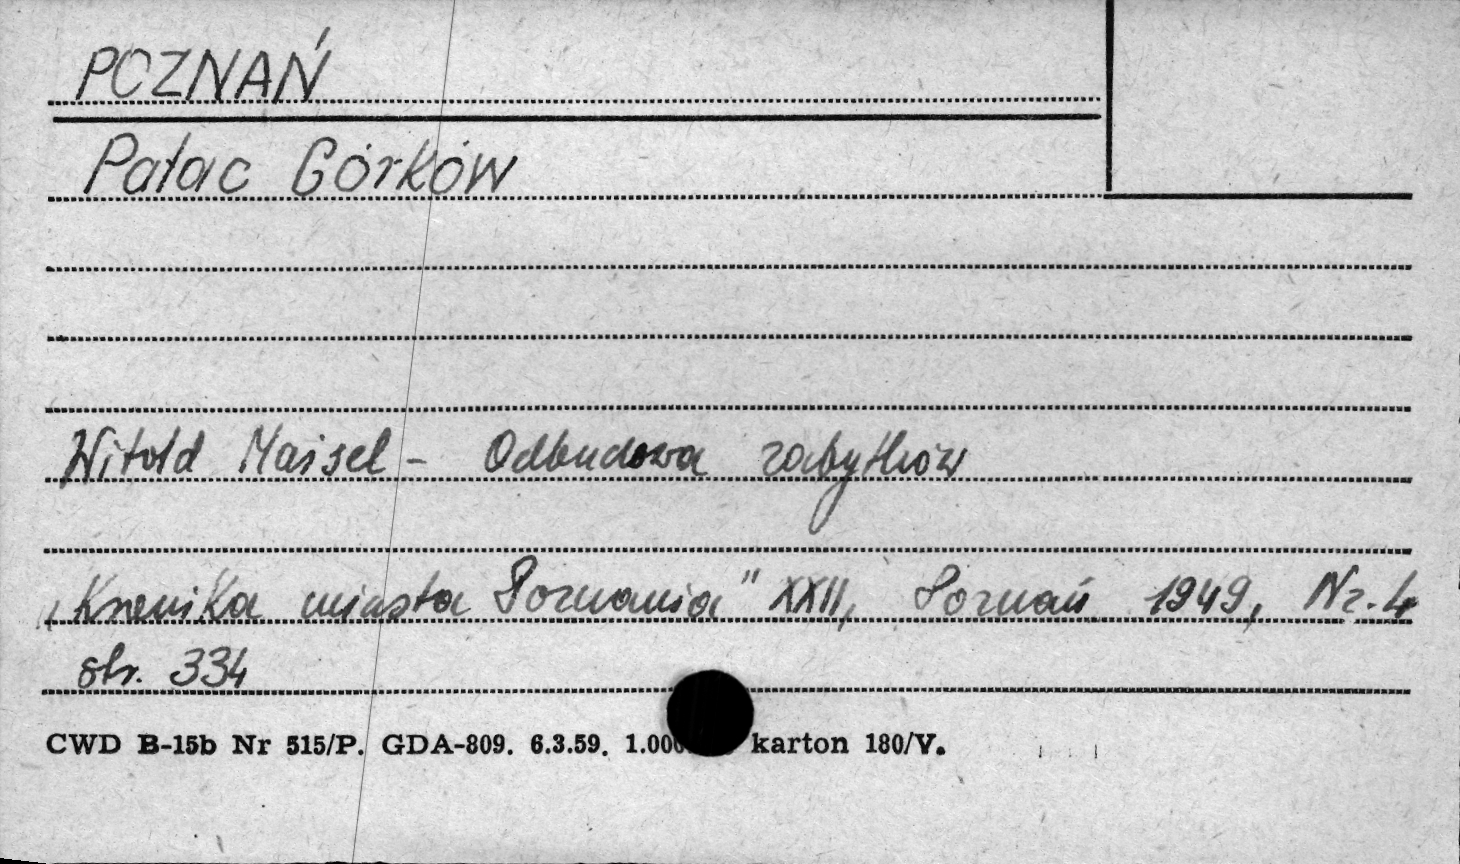 POZNAŃ
Pałac Górków
Witold Maisel - Odbudowa zabytków
„Kronika miasta Poznania" XXII, Poznań 1949, Nr. 4
str. 334
CWD B-15b Nr 515/P. GDA-809. 6.3.59. karton 180/V.